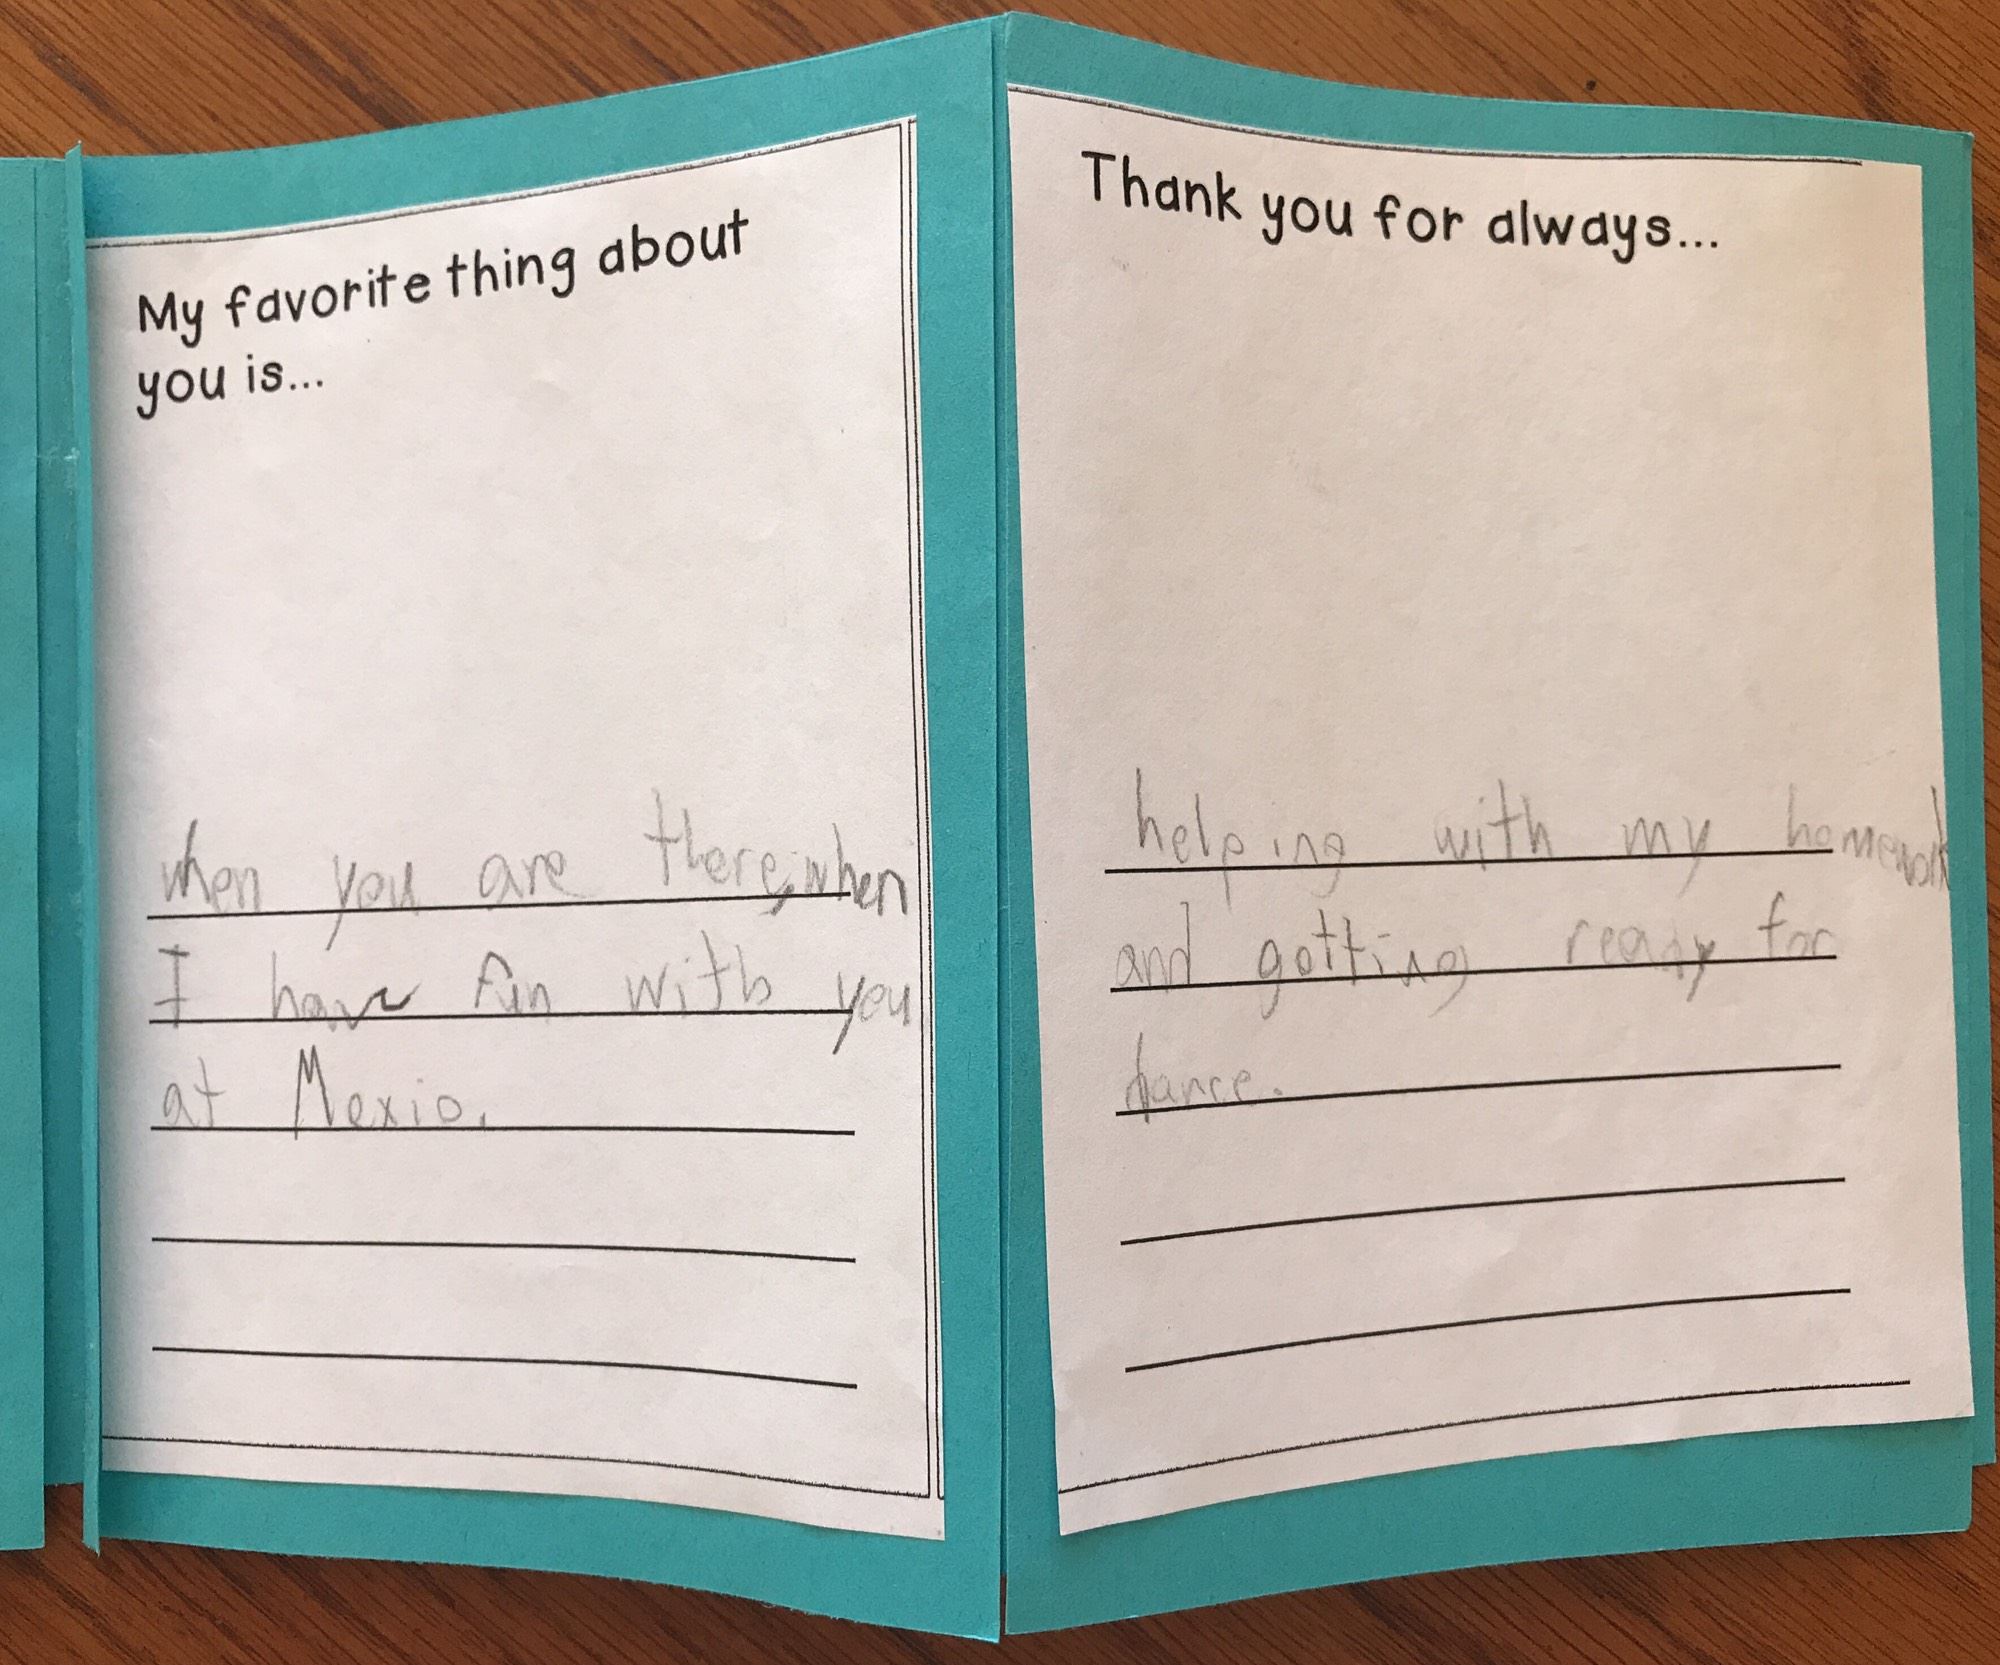 My favorite thing about
you is...
when you are there, when
I have fun with you
at Mexio.
Thank you for always...
helping with my homework
and gotting ready for
dance.